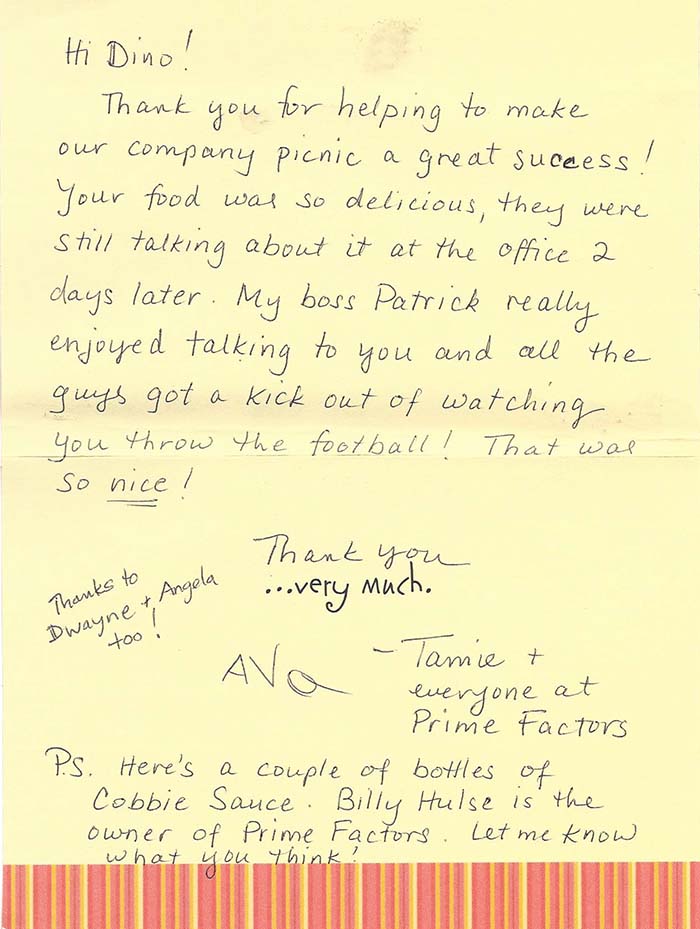 Hi Dino!
Thank you for helping to make
our company picnic a great success!
Your food was so delicious, they were
still talking about it at the office 2
days later. My boss Patrick really
enjoyed talking to you and all the
guys got a kick out of watching
you throw the football! That was
so nice!
Thank you
...very much.
Thanks to
Dwayne + Angela
too!
AVa
- Tamie +
everyone at
Prime Factors
P.S. Here's a couple of bottles of
Cobbie Sauce. Billy Hulse is the
owner of Prime Factors. Let me know
what you think!